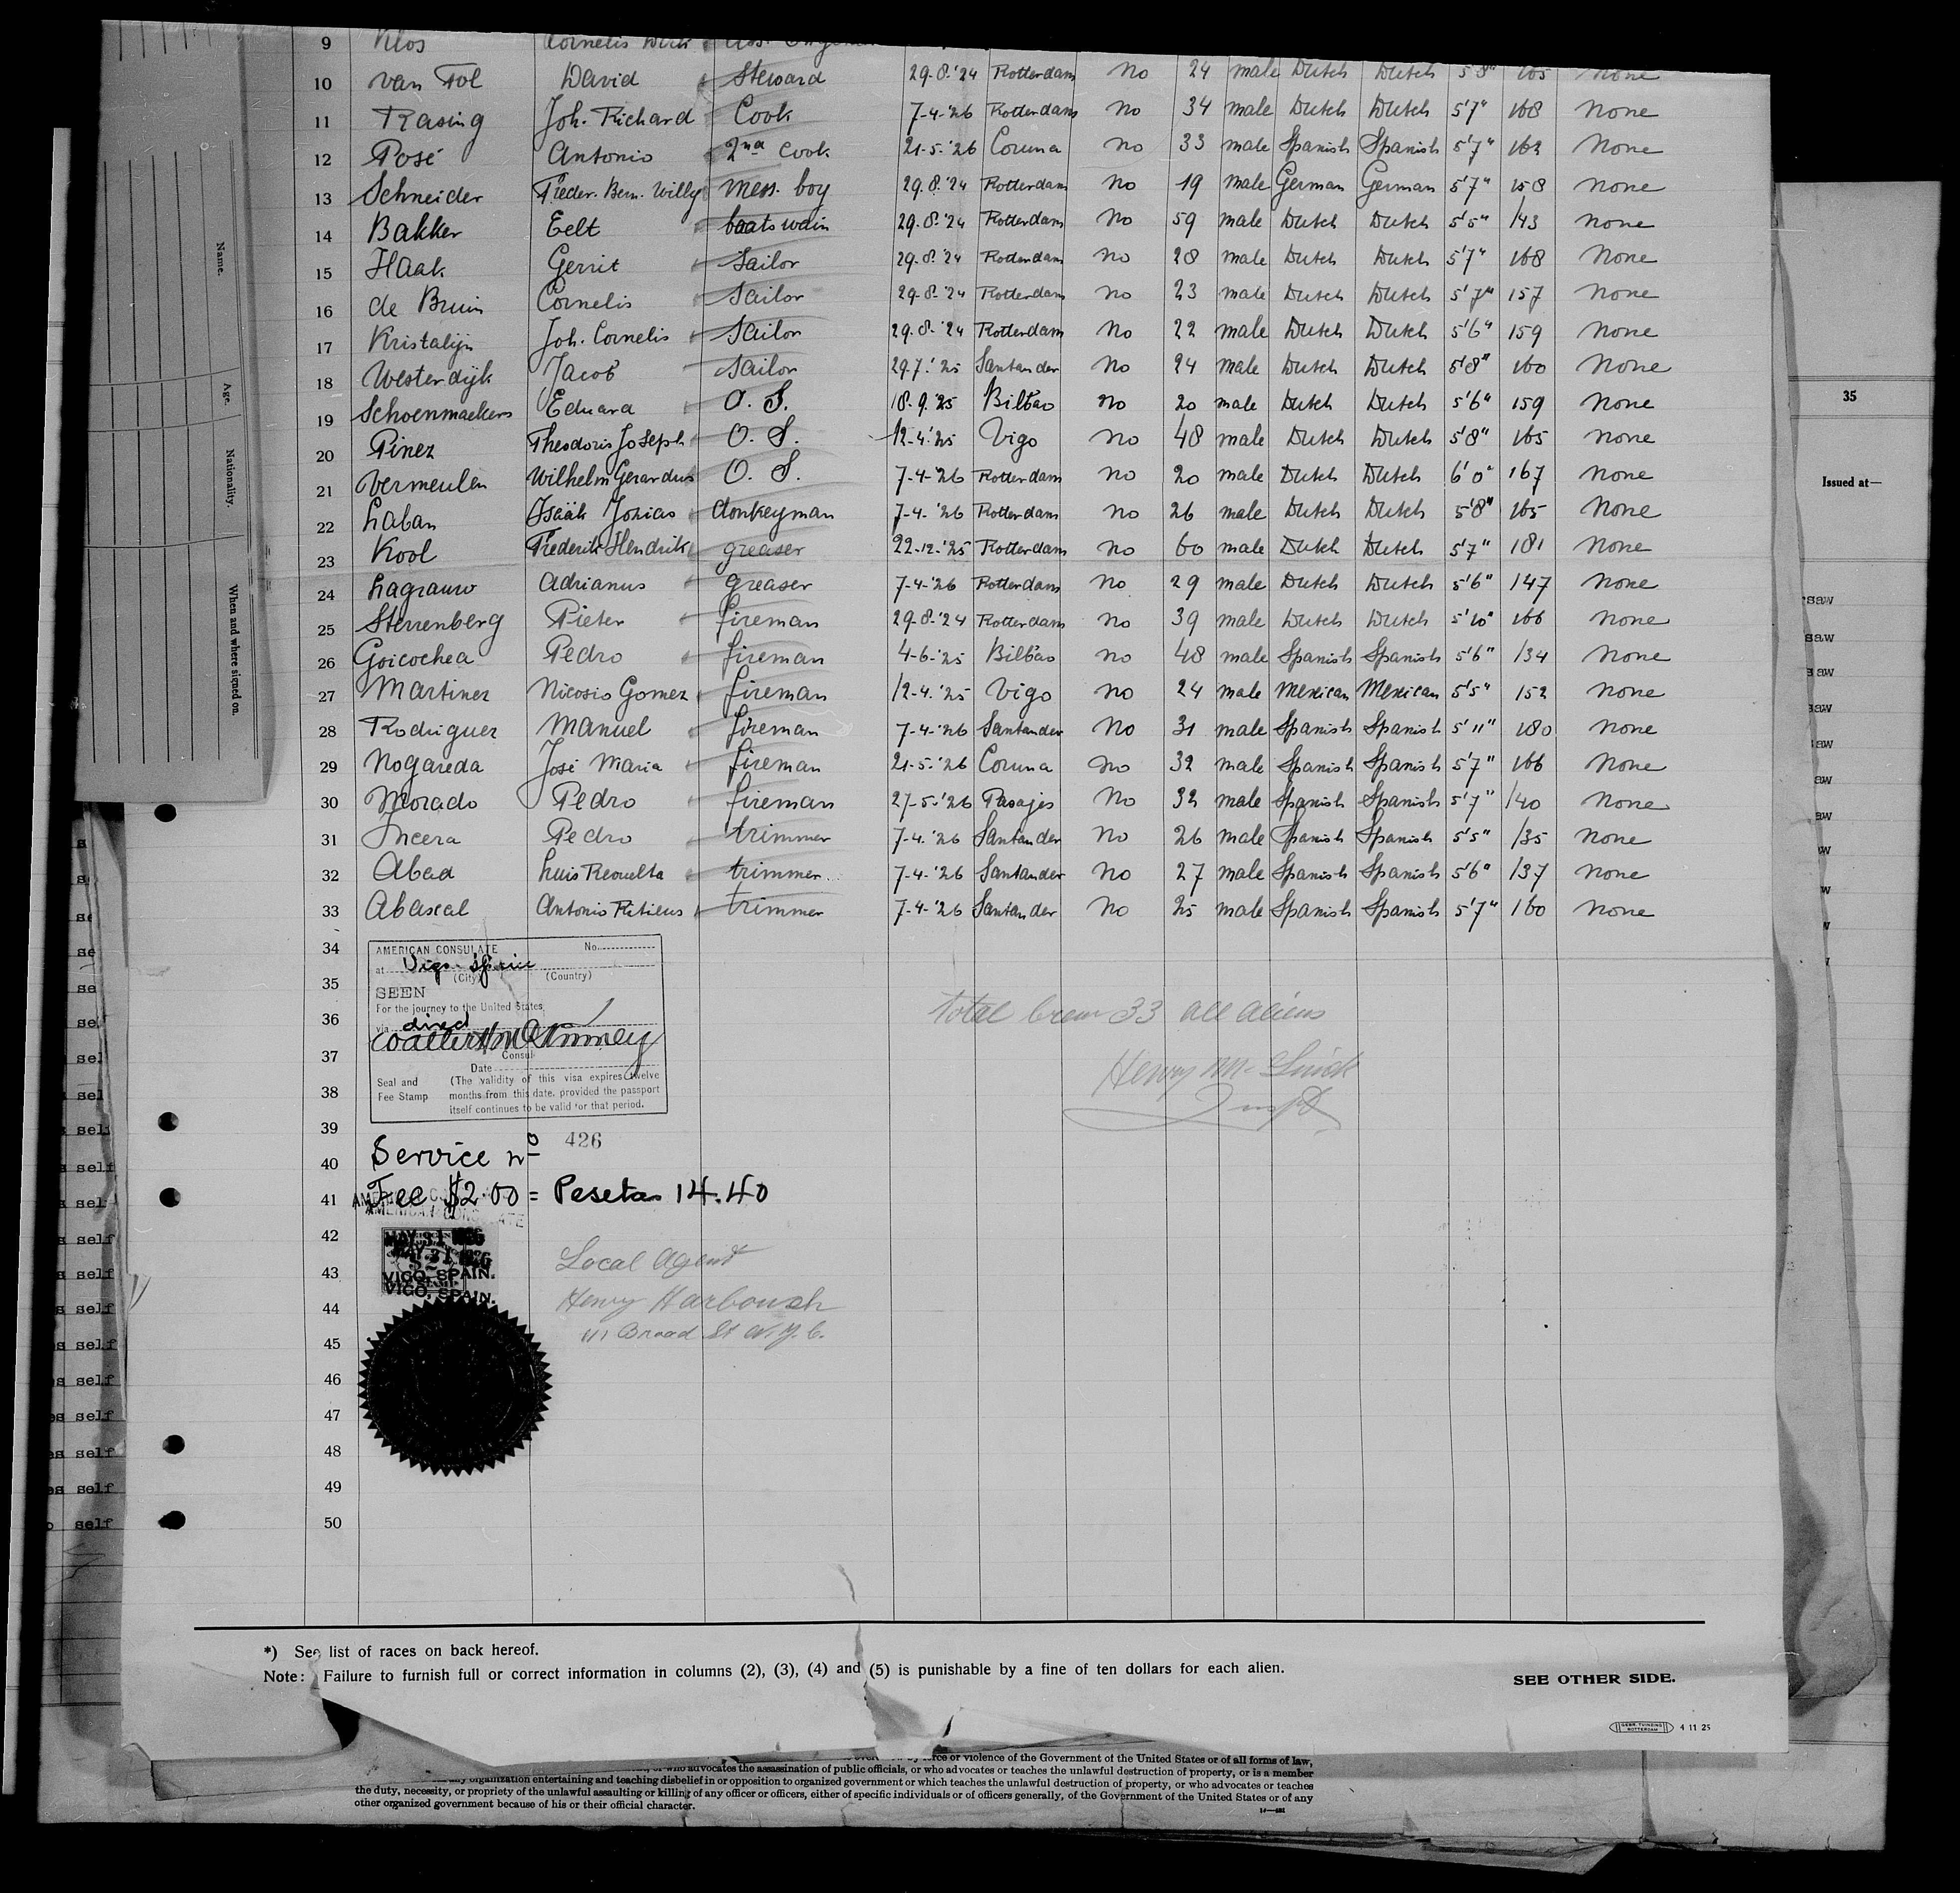 9 Klos Cornelis
10 van Tol David Steward 29-8-'24 Rotterdam No 24 male Dutch Dutch 5'8" 165 None
11 Rasing Joh. Richard Cook 7-4-'26 Rotterdam No 34 male Dutch Dutch 5'7" 168 None
12 Posé Antonio 2nd Cook 21-5-'26 Coruna No 33 male Spanish Spanish 5'7" 162 None
13 Schneider Frieder. Bern. Willy mess. boy 29-8-'24 Rotterdam No 19 male German German 5'7" 158 None
14 Bakker Eelt boatswain 29-8-'24 Rotterdam No 59 male Dutch Dutch 5'5" 143 None
15 Haak Gerrit Sailor 29-8-'24 Rotterdam No 28 male Dutch Dutch 5'7" 168 None
16 de Bruin Cornelis Sailor 29-8-'24 Rotterdam No 23 male Dutch Dutch 5'7" 157 None
17 Kristalijn Joh. Cornelis Sailor 29-8-'24 Rotterdam No 22 male Dutch Dutch 5'6" 159 None
18 Westerdijk Jacob Sailor 29-7-'25 Santander No 24 male Dutch Dutch 5'8" 160 None
19 Schoenmaekers Eduard O. S. 18-9-'25 Bilbao No 20 male Dutch Dutch 5'6" 159 None
20 Pinez Theodoris Joseph O. S. 12-4-'25 Vigo No 48 male Dutch Dutch 5'8" 165 None
21 Vermeulen Wilhelm Gerardus O. S. 7-4-'26 Rotterdam No 20 male Dutch Dutch 6'0" 167 None
22 Laban Isaäk Jozias donkeyman 7-4-'26 Rotterdam No 26 male Dutch Dutch 5'8" 165 None
23 Kool Frederik Hendrik greaser 22-12-'25 Rotterdam No 60 male Dutch Dutch 5'7" 181 None
24 Lagrauw Adrianus greaser 7-4-'26 Rotterdam No 29 male Dutch Dutch 5'6" 147 None
25 Sterrenberg Pieter fireman 29-8-'24 Rotterdam No 39 male Dutch Dutch 5'10" 166 None
26 Goicochea Pedro fireman 4-6-'25 Bilbao No 48 male Spanish Spanish 5'6" 134 None
27 Martinez Nicosio Gomez fireman 12-4-'25 Vigo No 24 male Mexican Mexican 5'5" 152 None
28 Rodriguez Manuel fireman 7-4-'26 Santander No 31 male Spanish Spanish 5'11" 180 None
29 Nogareda José Maria fireman 21-5-'26 Coruna No 32 male Spanish Spanish 5'7" 166 None
30 Morado Pedro fireman 27-5-'26 Pasajes No 32 male Spanish Spanish 5'7" 140 None
31 Incera Pedro trimmer 7-4-'26 Santander No 26 male Spanish Spanish 5'5" 135 None
32 Abad Luis Revuelta trimmer 7-4-'26 Santander No 27 male Spanish Spanish 5'6" 137 None
33 Abascal Antonio trimmer 7-4-'26 Santander No 25 male Spanish Spanish 5'7" 160 None
34
AMERICAN CONSULATE No.
at Vigo Spain
(City) (Country)
35
SEEN
For the journey to the United States
36
via direct
37
Consul
Date
38
Seal and Fee Stamp (The validity of this visa expires twelve months from this date, provided the passport itself continues to be valid for that period.
total crew 33 all aliens
39
40 Service no 426
41 Fee $2.00 = Pesetas 14.40
AMERICAN CONSULATE
42
MAY 31 1926
43
VIGO, SPAIN.
VIGO, SPAIN.
Local Agent
44
Henry Harboush
45
111 Broad St N.Y.C.
46
47
48
49
50
*) See list of races on back hereof.
Note: Failure to furnish full or correct information in columns (2), (3), (4) and (5) is punishable by a fine of ten dollars for each alien.
SEE OTHER SIDE.
4 11 25
force or violence of the Government of the United States or of all forms of law,
or who advocates the assassination of public officials, or who advocates or teaches the unlawful destruction of property, or is a member
any organization entertaining and teaching disbelief in or opposition to organized government or which teaches the unlawful destruction of property, or who advocates or teaches
the duty, necessity, or propriety of the unlawful assaulting or killing of any officer or officers, either of specific individuals or of officers generally, of the Government of the United States or of any
other organized government because of his or their official character.
Name.
Age.
Nationality.
When and where signed on.
35
Issued at—